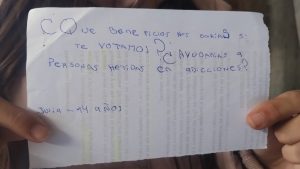 ¿QUE BENEFICIOS NOS DARÍAS SI
TE VOTAMOS? ¿AYUDARIAS A
PERSONAS METIDAS EN ADICCIONES?
- 14 AÑOS